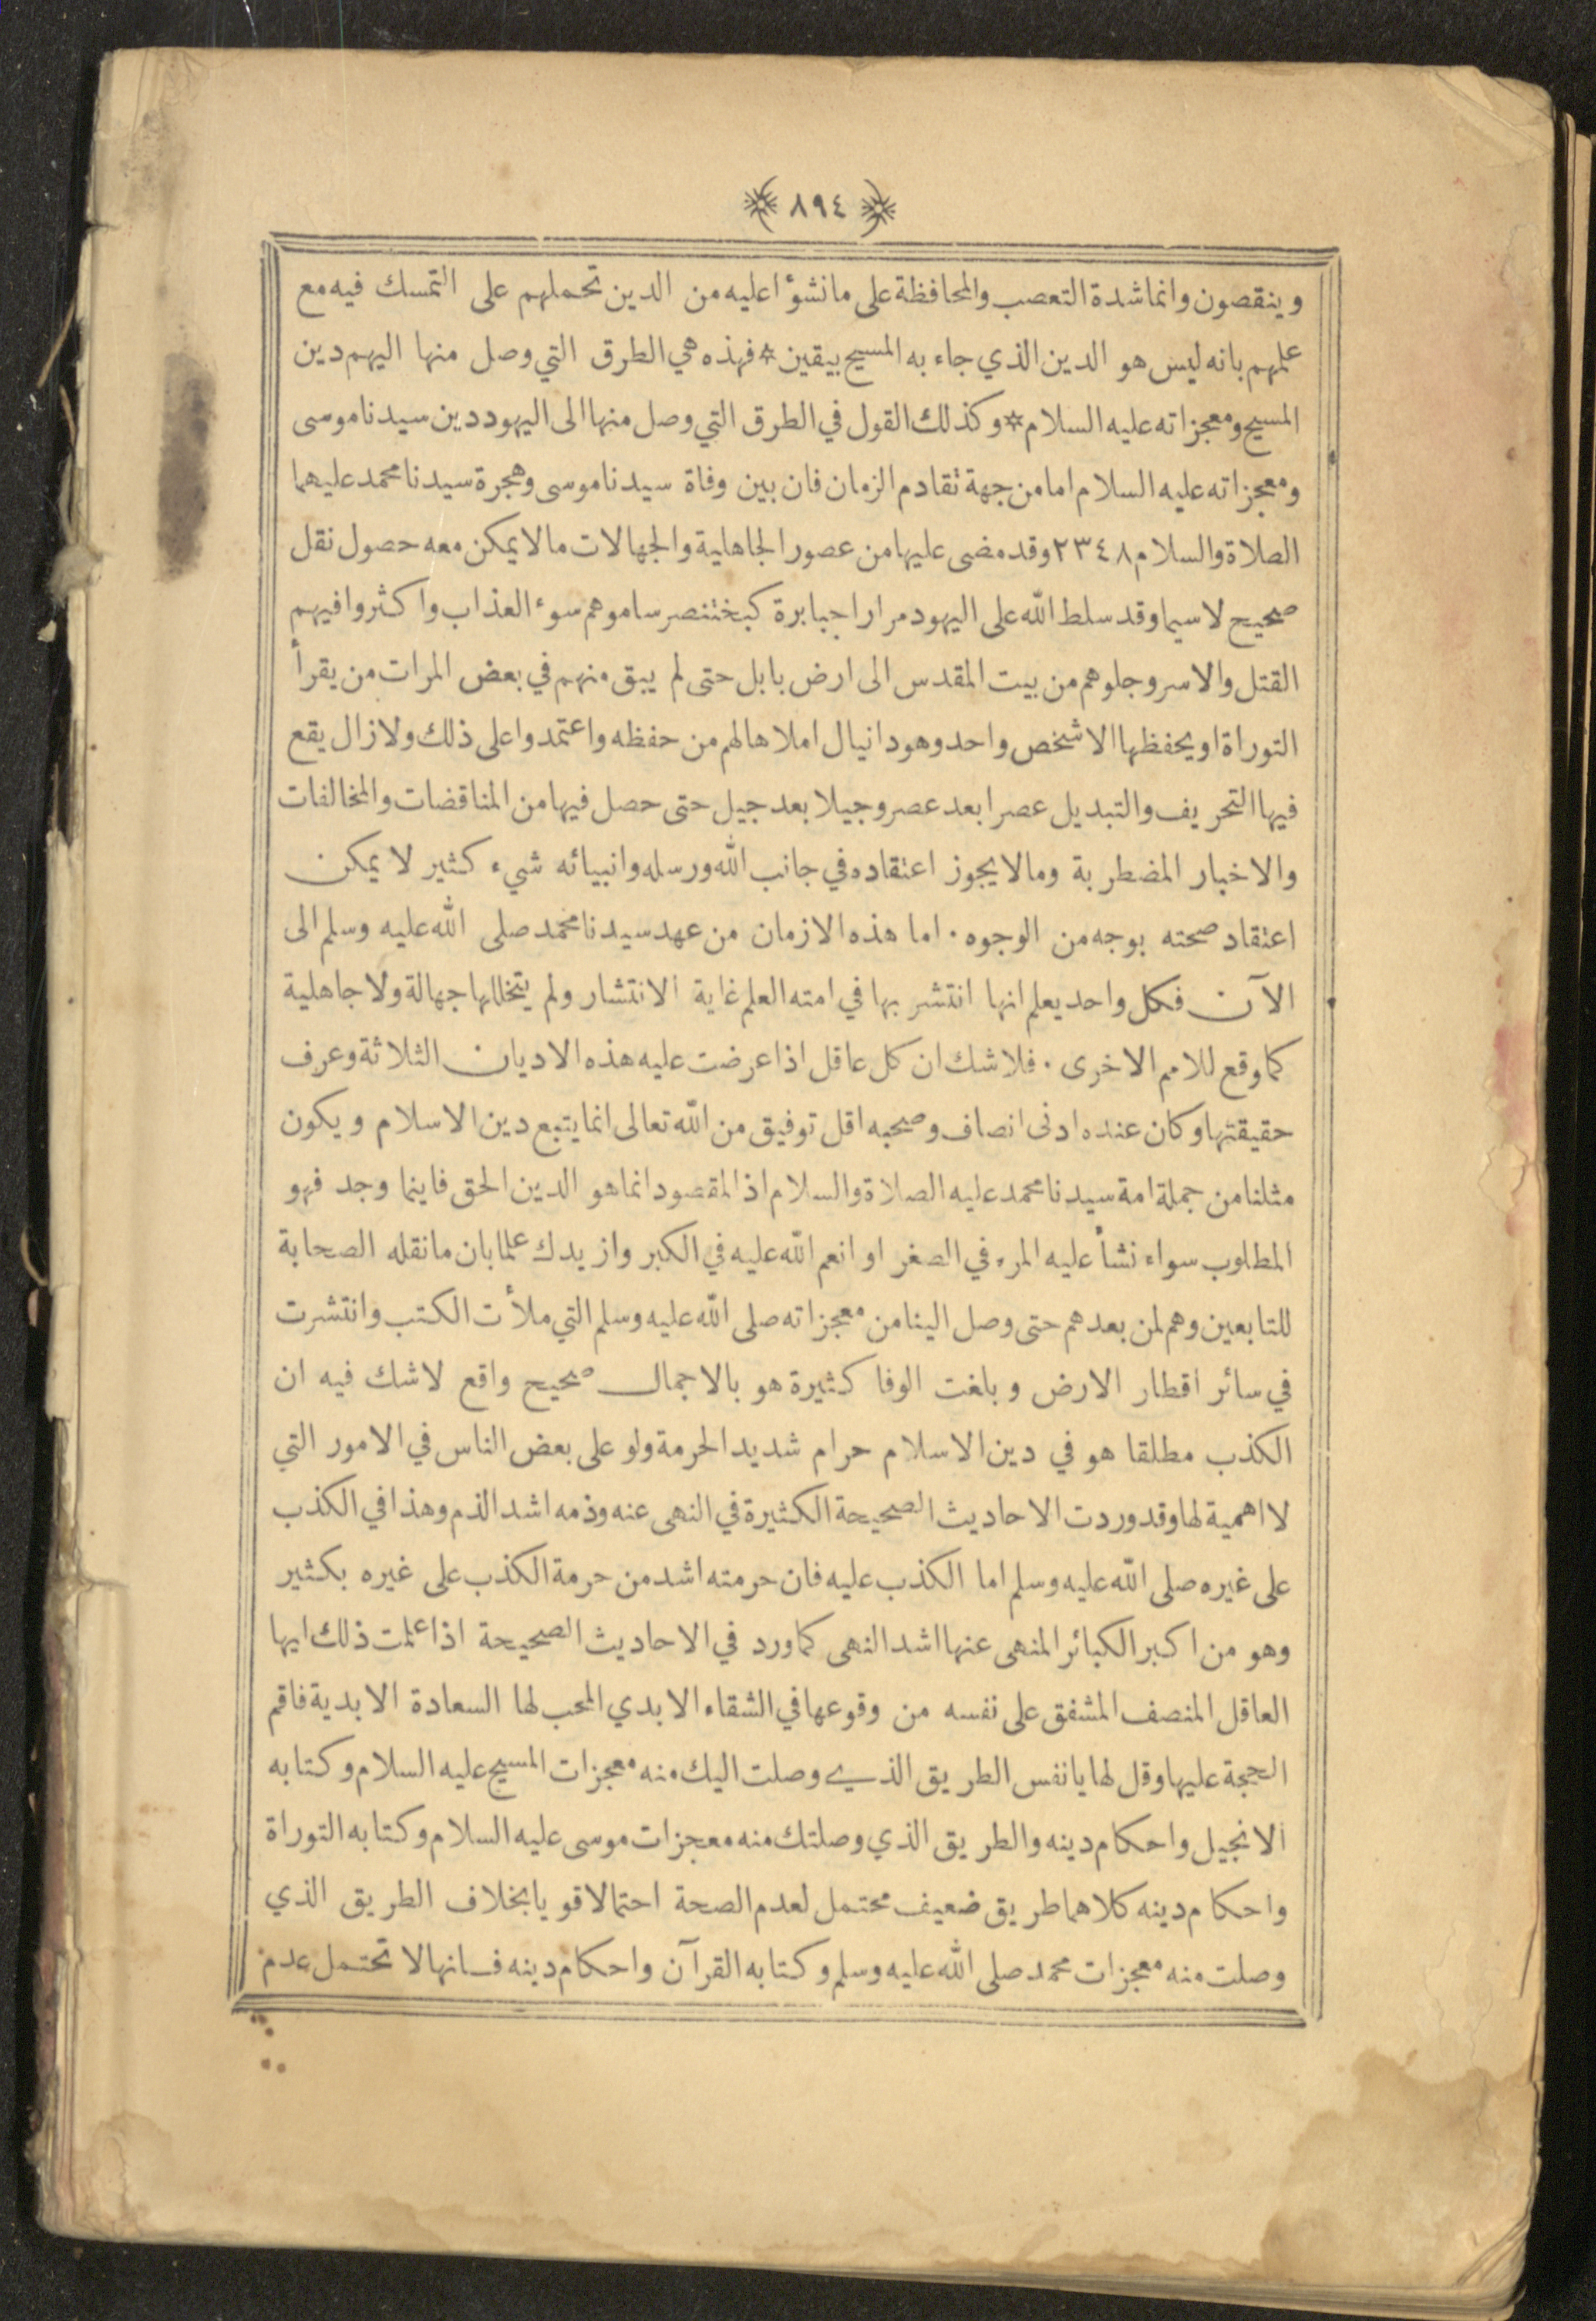 ٨٩٤
وينقصون وانما شدة التعصب والمحافظة على ما نشؤا عليه من الدين تحملهم على التمسك فيه مع
علمهم بانه ليس هو الدين الذي جاء به المسيح بيقين * فهذه هي الطرق التي وصل منها اليهم دين
المسيح ومعجزاته عليه السلام * وكذلك القول في الطرق التي وصل منها الى اليهود دين سيدنا موسى
ومعجزاته عليه السلام اما من جهة تقادم الزمان فان بين وفاة سيدنا موسى وهجرة سيدنا محمد عليهما
الصلاة والسلام ٢٣٤٨ وقد مضى عليها من عصور الجاهلية والجهالات ما لا يمكن معه حصول نقل
صحيح لا سيما وقد سلط الله على اليهود مرارا جبابرة كبختنصر ساموهم سوء العذاب واكثروا فيهم
القتل والاسر وجلوهم من بيت المقدس الى ارض بابل حتى لم يبق منهم في بعض المرات من يقرأ
التوراة او يحفظها الا شخص واحد وهو دانيال املاها لهم من حفظه واعتمدوا على ذلك ولا زال يقع
فيها التحريف والتبديل عصرا بعد عصر وجيلا بعد جيل حتى حصل فيها من المناقضات والمخالفات
والاخبار المضطربة وما لا يجوز اعتقاده في جانب الله ورسله وانبيائه شيء كثير لا يمكن
اعتقاد صحته بوجه من الوجوه . اما هذه الازمان من عهد سيدنا محمد صلى الله عليه وسلم الى
الآن فكل واحد يعلم انها انتشر بها في امته العلم غاية الانتشار ولم يتخللها جهالة ولا جاهلية
كما وقع للامم الاخرى . فلا شك ان كل عاقل اذا عرضت عليه هذه الاديان الثلاثة وعرف
حقيقتها وكان عنده ادنى انصاف وصحبه اقل توفيق من الله تعالى انما يتبع دين الاسلام ويكون
مثلنا من جملة امة سيدنا محمد عليه الصلاة والسلام اذ المقصود انما هو الدين الحق فاينما وجد فهو
المطلوب سواء نشأ عليه المرء في الصغر او انعم الله عليه في الكبر وازيدك علما بان ما نقله الصحابة
للتابعين وهم لمن بعدهم حتى وصل الينا من معجزاته صلى الله عليه وسلم التي ملأت الكتب وانتشرت
في سائر اقطار الارض وبلغت الوفا كثيرة هو بالاجمال صحيح واقع لا شك فيه ان
الكذب مطلقا هو في دين الاسلام حرام شديد الحرمة ولو على بعض الناس في الامور التي
لا اهمية لها وقد وردت الاحاديث الصحيحة الكثيرة في النهى عنه وذمه اشد الذم وهذا في الكذب
على غيره صلى الله عليه وسلم اما الكذب عليه فان حرمته اشد من حرمة الكذب على غيره بكثير
وهو من اكبر الكبائر المنهى عنها اشد النهى كما ورد في الاحاديث الصحيحة اذا علمت ذلك ايها
العاقل المنصف المشفق على نفسه من وقوعها في الشقاء الابدي المحب لها السعادة الابدية فاقم
الحجة عليها وقل لها يا نفس الطريق الذي وصلت اليك منه معجزات المسيح عليه السلام وكتابه
الانجيل واحكام دينه والطريق الذي وصلتك منه معجزات موسى عليه السلام وكتابه التوراة
واحكام دينه كلاهما طريق ضعيف محتمل لعدم الصحة احتمالا قويا بخلاف الطريق الذي
وصلت منه معجزات محمد صلى الله عليه وسلم وكتابه القرآن واحكام دينه فانها لا تحتمل عدم